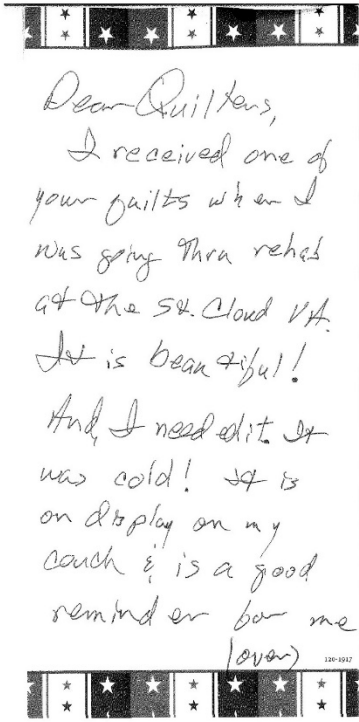 Dear Quilters,
I received one of
your quilts when I
was going thru rehab
at the St. Cloud VA.
It is beautiful!
And, I needed it. It
was cold! It is
on display on my
couch & is a good
reminder for me
(over)
120-1917